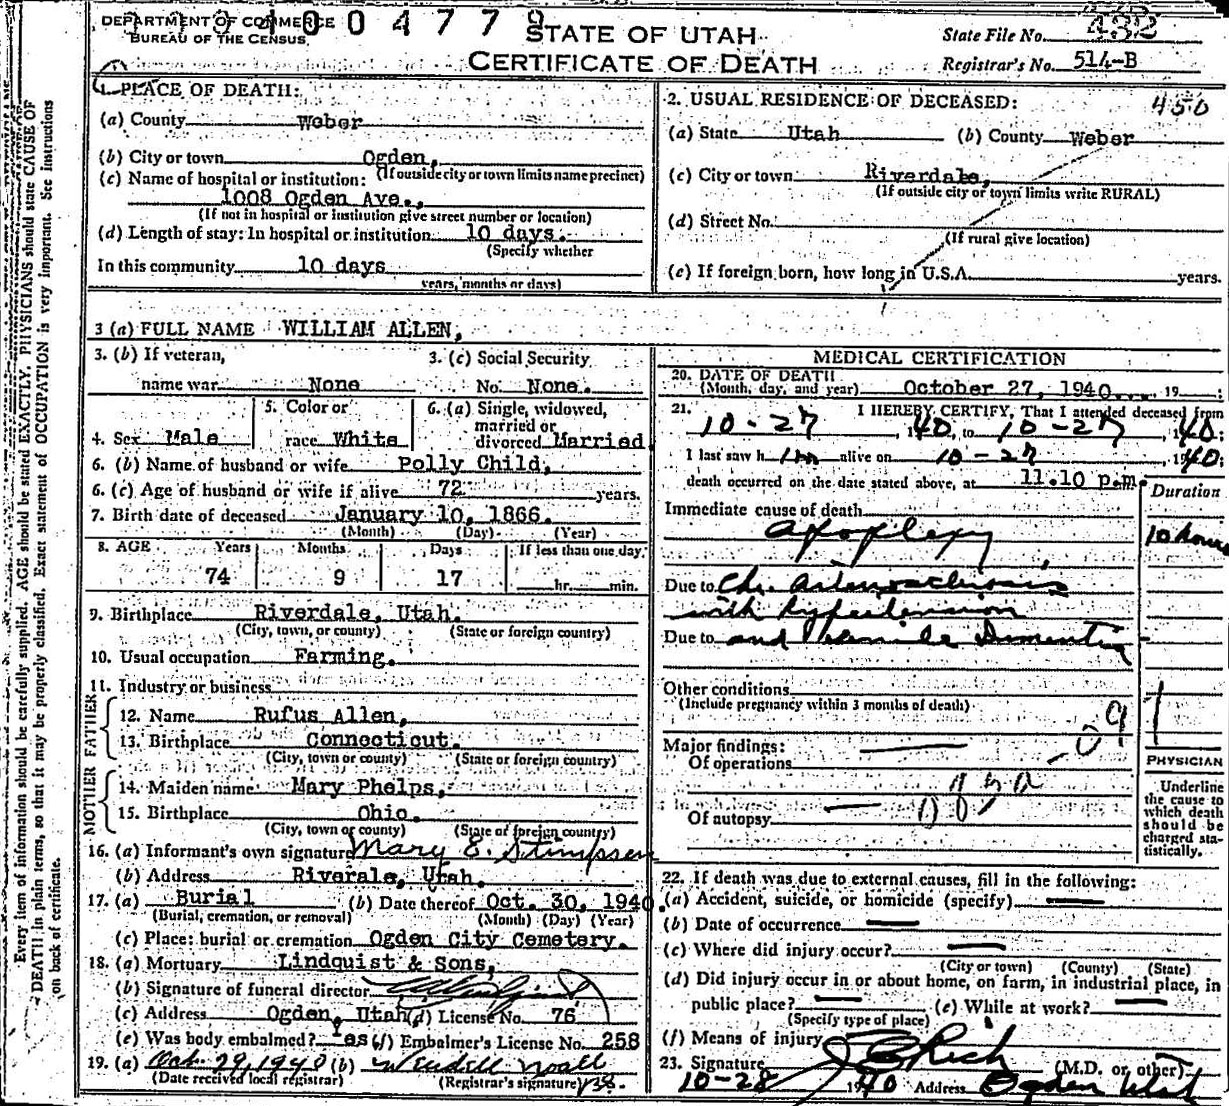 DEPARTMENT OF COMMERCE
BUREAU OF THE CENSUS
1004779
STATE OF UTAH
CERTIFICATE OF DEATH
State File No. 432
Registrar's No. 514-B
1. PLACE OF DEATH:
(a) County Weber
(b) City or town Ogden,
(If outside city or town limits name precinct)
(c) Name of hospital or institution:
1008 Ogden Ave.,
(If not in hospital or institution give street number or location)
(d) Length of stay: In hospital or institution 10 days.
(Specify whether
In this community 10 days
years, months or days)
2. USUAL RESIDENCE OF DECEASED:
450
(a) State Utah (b) County Weber
(c) City or town Riverdale,
(If outside city or town limits write RURAL)
(d) Street No.
(If rural give location)
(e) If foreign born, how long in U.S.A. years.
3 (a) FULL NAME WILLIAM ALLEN,
3. (b) If veteran,
name war None
3. (c) Social Security
No. None.
4. Sex Male
5. Color or
race White
6. (a) Single, widowed,
married or
divorced Married
6. (b) Name of husband or wife Polly Child,
6. (c) Age of husband or wife if alive 72 years.
7. Birth date of deceased January 10, 1866.
(Month) (Day) (Year)
8. AGE Years Months Days If less than one day
74 9 17 hr. min.
9. Birthplace Riverdale, Utah.
(City, town, or county) (State or foreign country)
10. Usual occupation Farming.
11. Industry or business
FATHER
12. Name Rufus Allen,
13. Birthplace Connecticut.
(City, town or county) (State or foreign country)
MOTHER
14. Maiden name Mary Phelps,
15. Birthplace Ohio.
(City, town or county) (State of foreign country)
16. (a) Informant's own signature Mary E. Stimpson
(b) Address Riverale, Utah.
17. (a) Burial (b) Date thereof Oct. 30, 1940.
(Burial, cremation, or removal) (Month) (Day) (Year)
(c) Place: burial or cremation Ogden City Cemetery.
18. (a) Mortuary Lindquist & Sons,
(b) Signature of funeral director
(c) Address Ogden, Utah (d) License No. 76
(e) Was body embalmed? Yes (f) Embalmer's License No. 258
19. (a) Oct. 29, 1940 (b) Wendell Noall
(Date received local registrar) (Registrar's signature)
MEDICAL CERTIFICATION
20. DATE OF DEATH
(Month, day, and year) October 27, 1940 19
21. I HEREBY CERTIFY, That I attended deceased from
10-27, 1940, to 10-27, 1940:
I last saw him alive on 10-27, 1940:
death occurred on the date stated above, at 11.10 p.m.
Duration
Immediate cause of death
Apoplexy 10 hours
Due to Ch. Arteriosclerosis
with hypertension
Due to and Senile Dementia
Other conditions
(Include pregnancy within 3 months of death)
Major findings:
Of operations
Of autopsy
PHYSICIAN
Underline
the cause to
which death
should be
charged sta-
tistically.
22. If death was due to external causes, fill in the following:
(a) Accident, suicide, or homicide (specify)
(b) Date of occurrence
(c) Where did injury occur?
(City or town) (County) (State)
(d) Did injury occur in or about home, on farm, in industrial place, in
public place? (e) While at work?
(Specify type of place)
(f) Means of injury
23. Signature J C Rich (M.D. or other)
10-28 1940 Address Ogden Utah
Every item of information should be carefully supplied. AGE should be stated EXACTLY. PHYSICIANS should state CAUSE OF
DEATH in plain terms, so that it may be properly classified. Exact statement of OCCUPATION is very important. See instructions
on back of certificate.